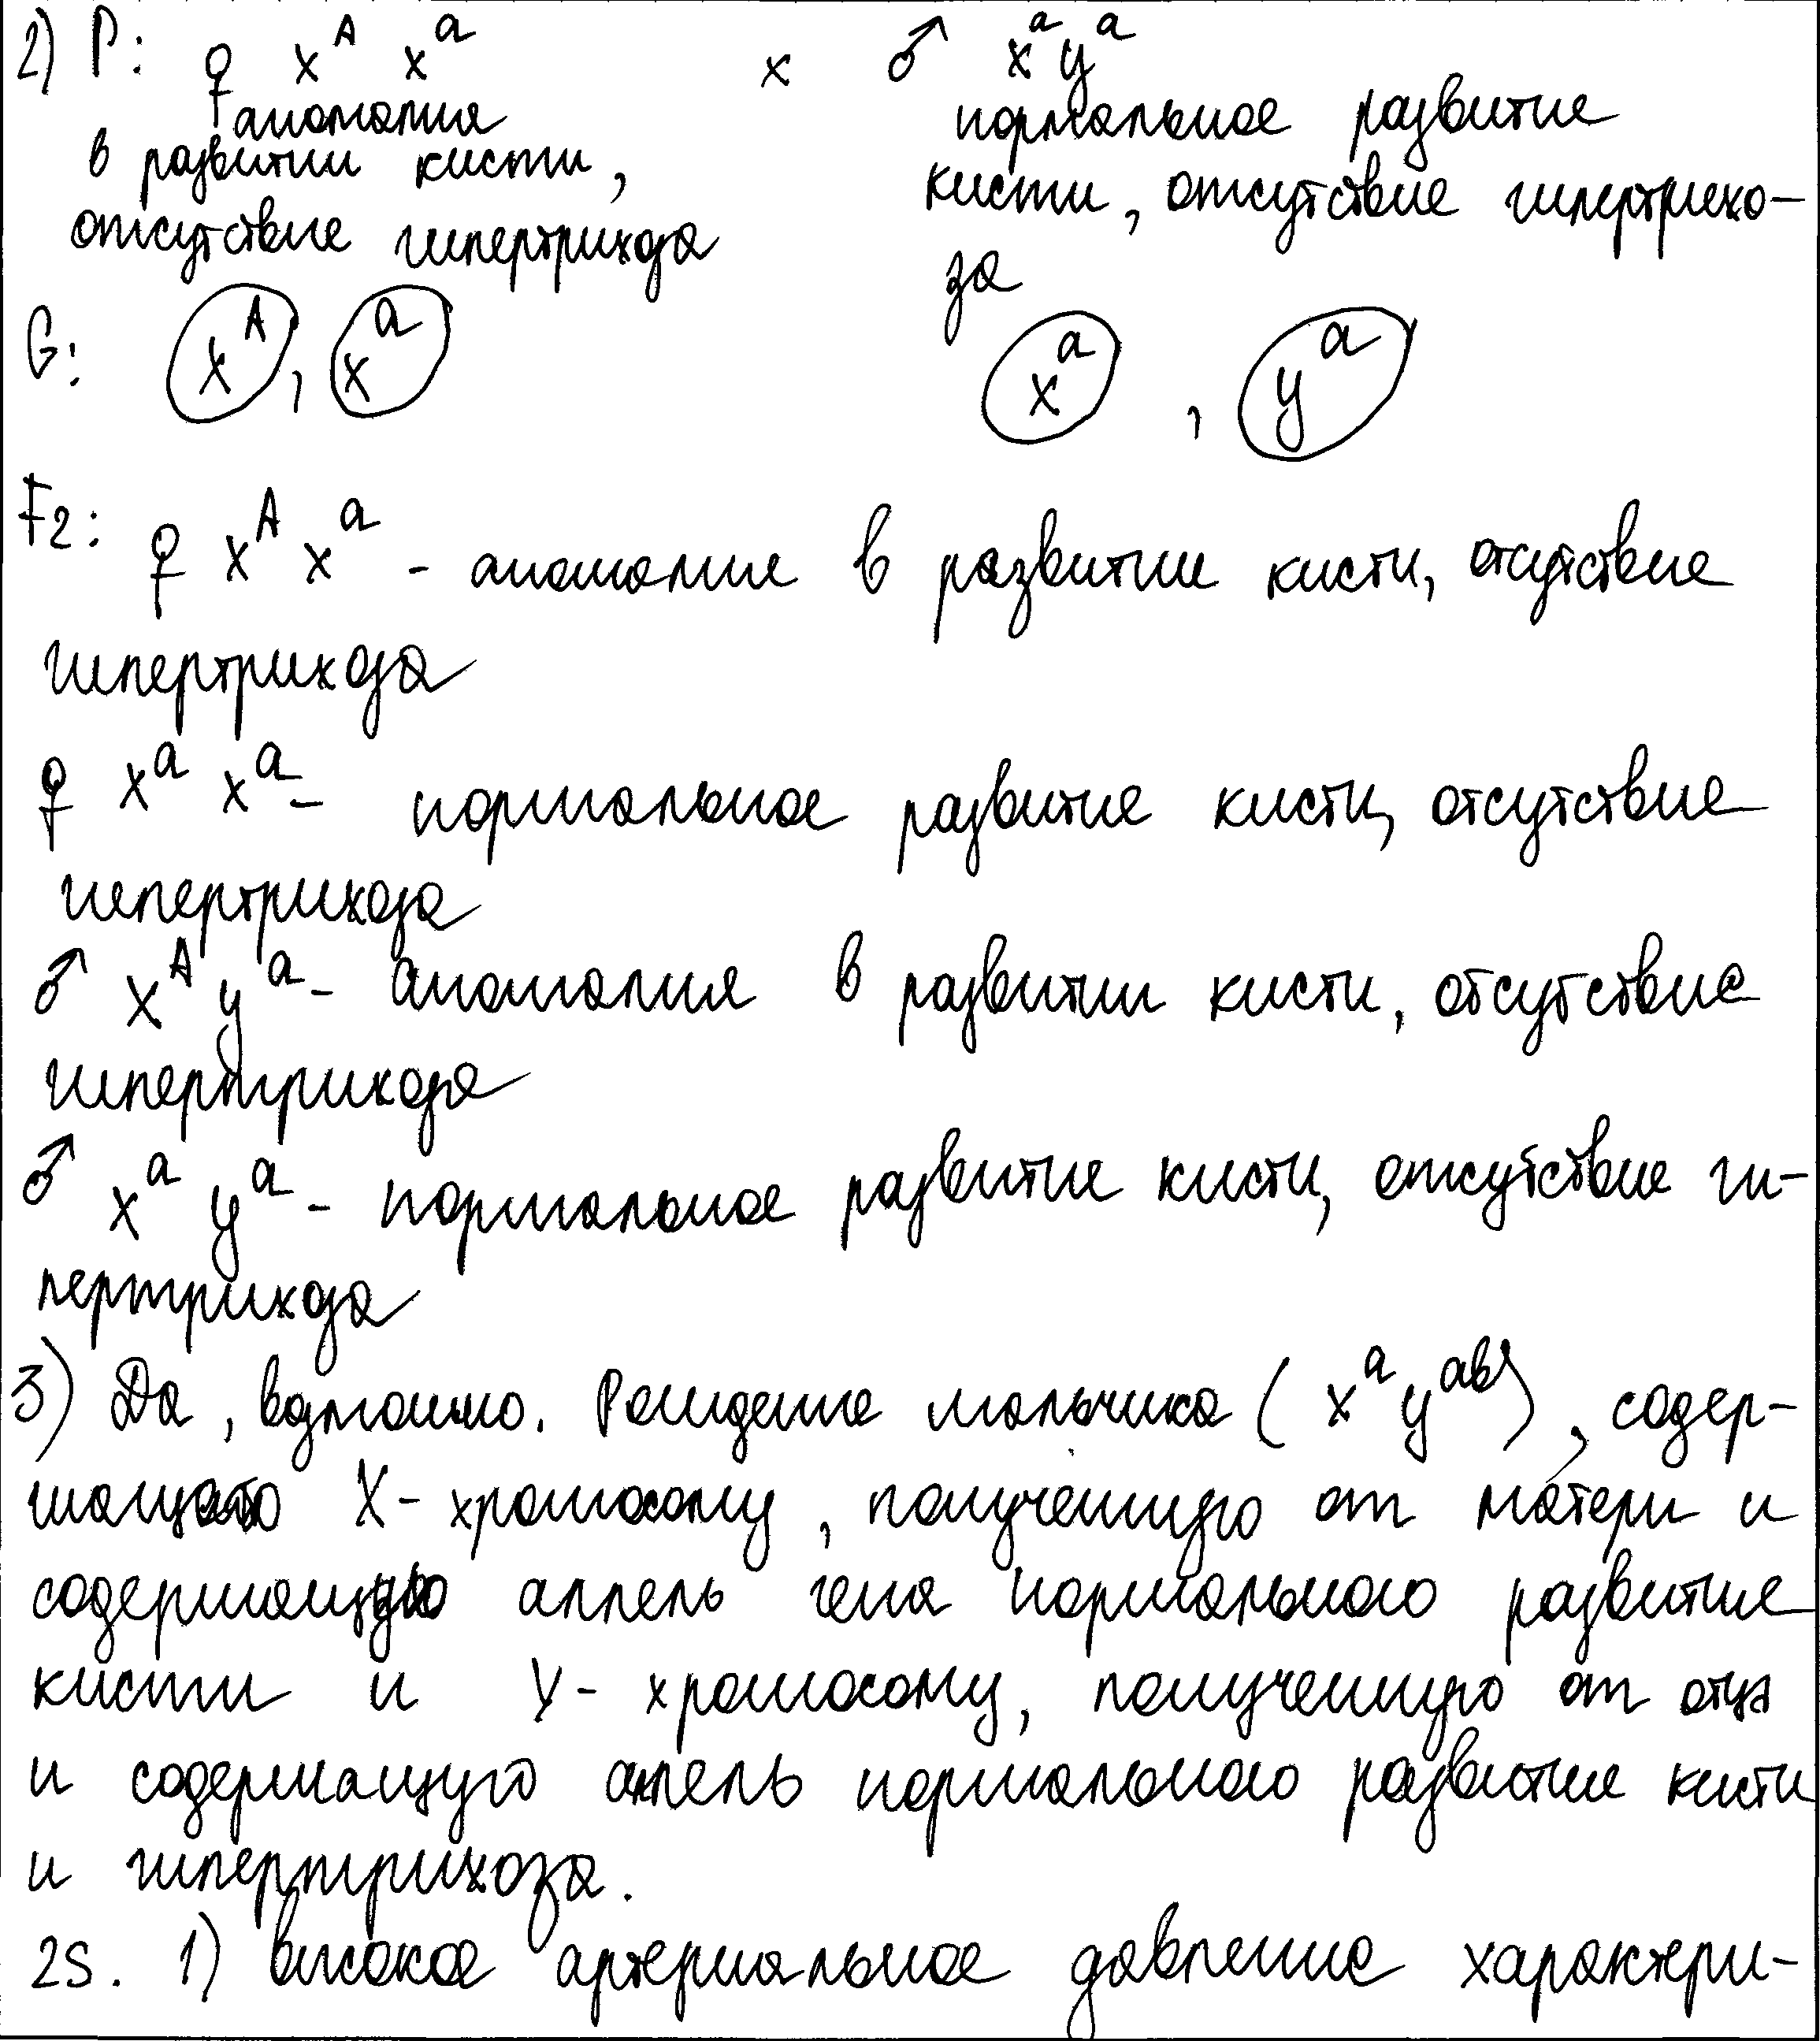 2) P: ♀ x^A x^a x ♂ x^a y^a
аномалия нормальное развитие
в развитии кисти, кисти, отсутствие гипертрихо-
отсутствие гипертрихоза за
G: x^A, x^a x^a, y^a
F2: ♀ x^A x^a - аномалия в развитии кисти, отсутствие
гипертрихоза
♀ x^a x^a - нормальное развитие кисти, отсутствие
гипертрихоза
♂ x^A y^a - аномалия в развитии кисти, отсутствие
гипертрихоза
♂ x^a y^a - нормальное развитие кисти, отсутствие ги-
пертрихоза
3) Да, возможно. Рождение мальчика (x^a y^ab), содер-
жащего X-хромосому, полученную от матери и
содержащую аллель гена нормального развития
кисти и Y-хромосому, полученную от отца
и содержащую аллель нормального развития кисти
и гипертрихоза.
25. 1) высокое артериальное давление характери-